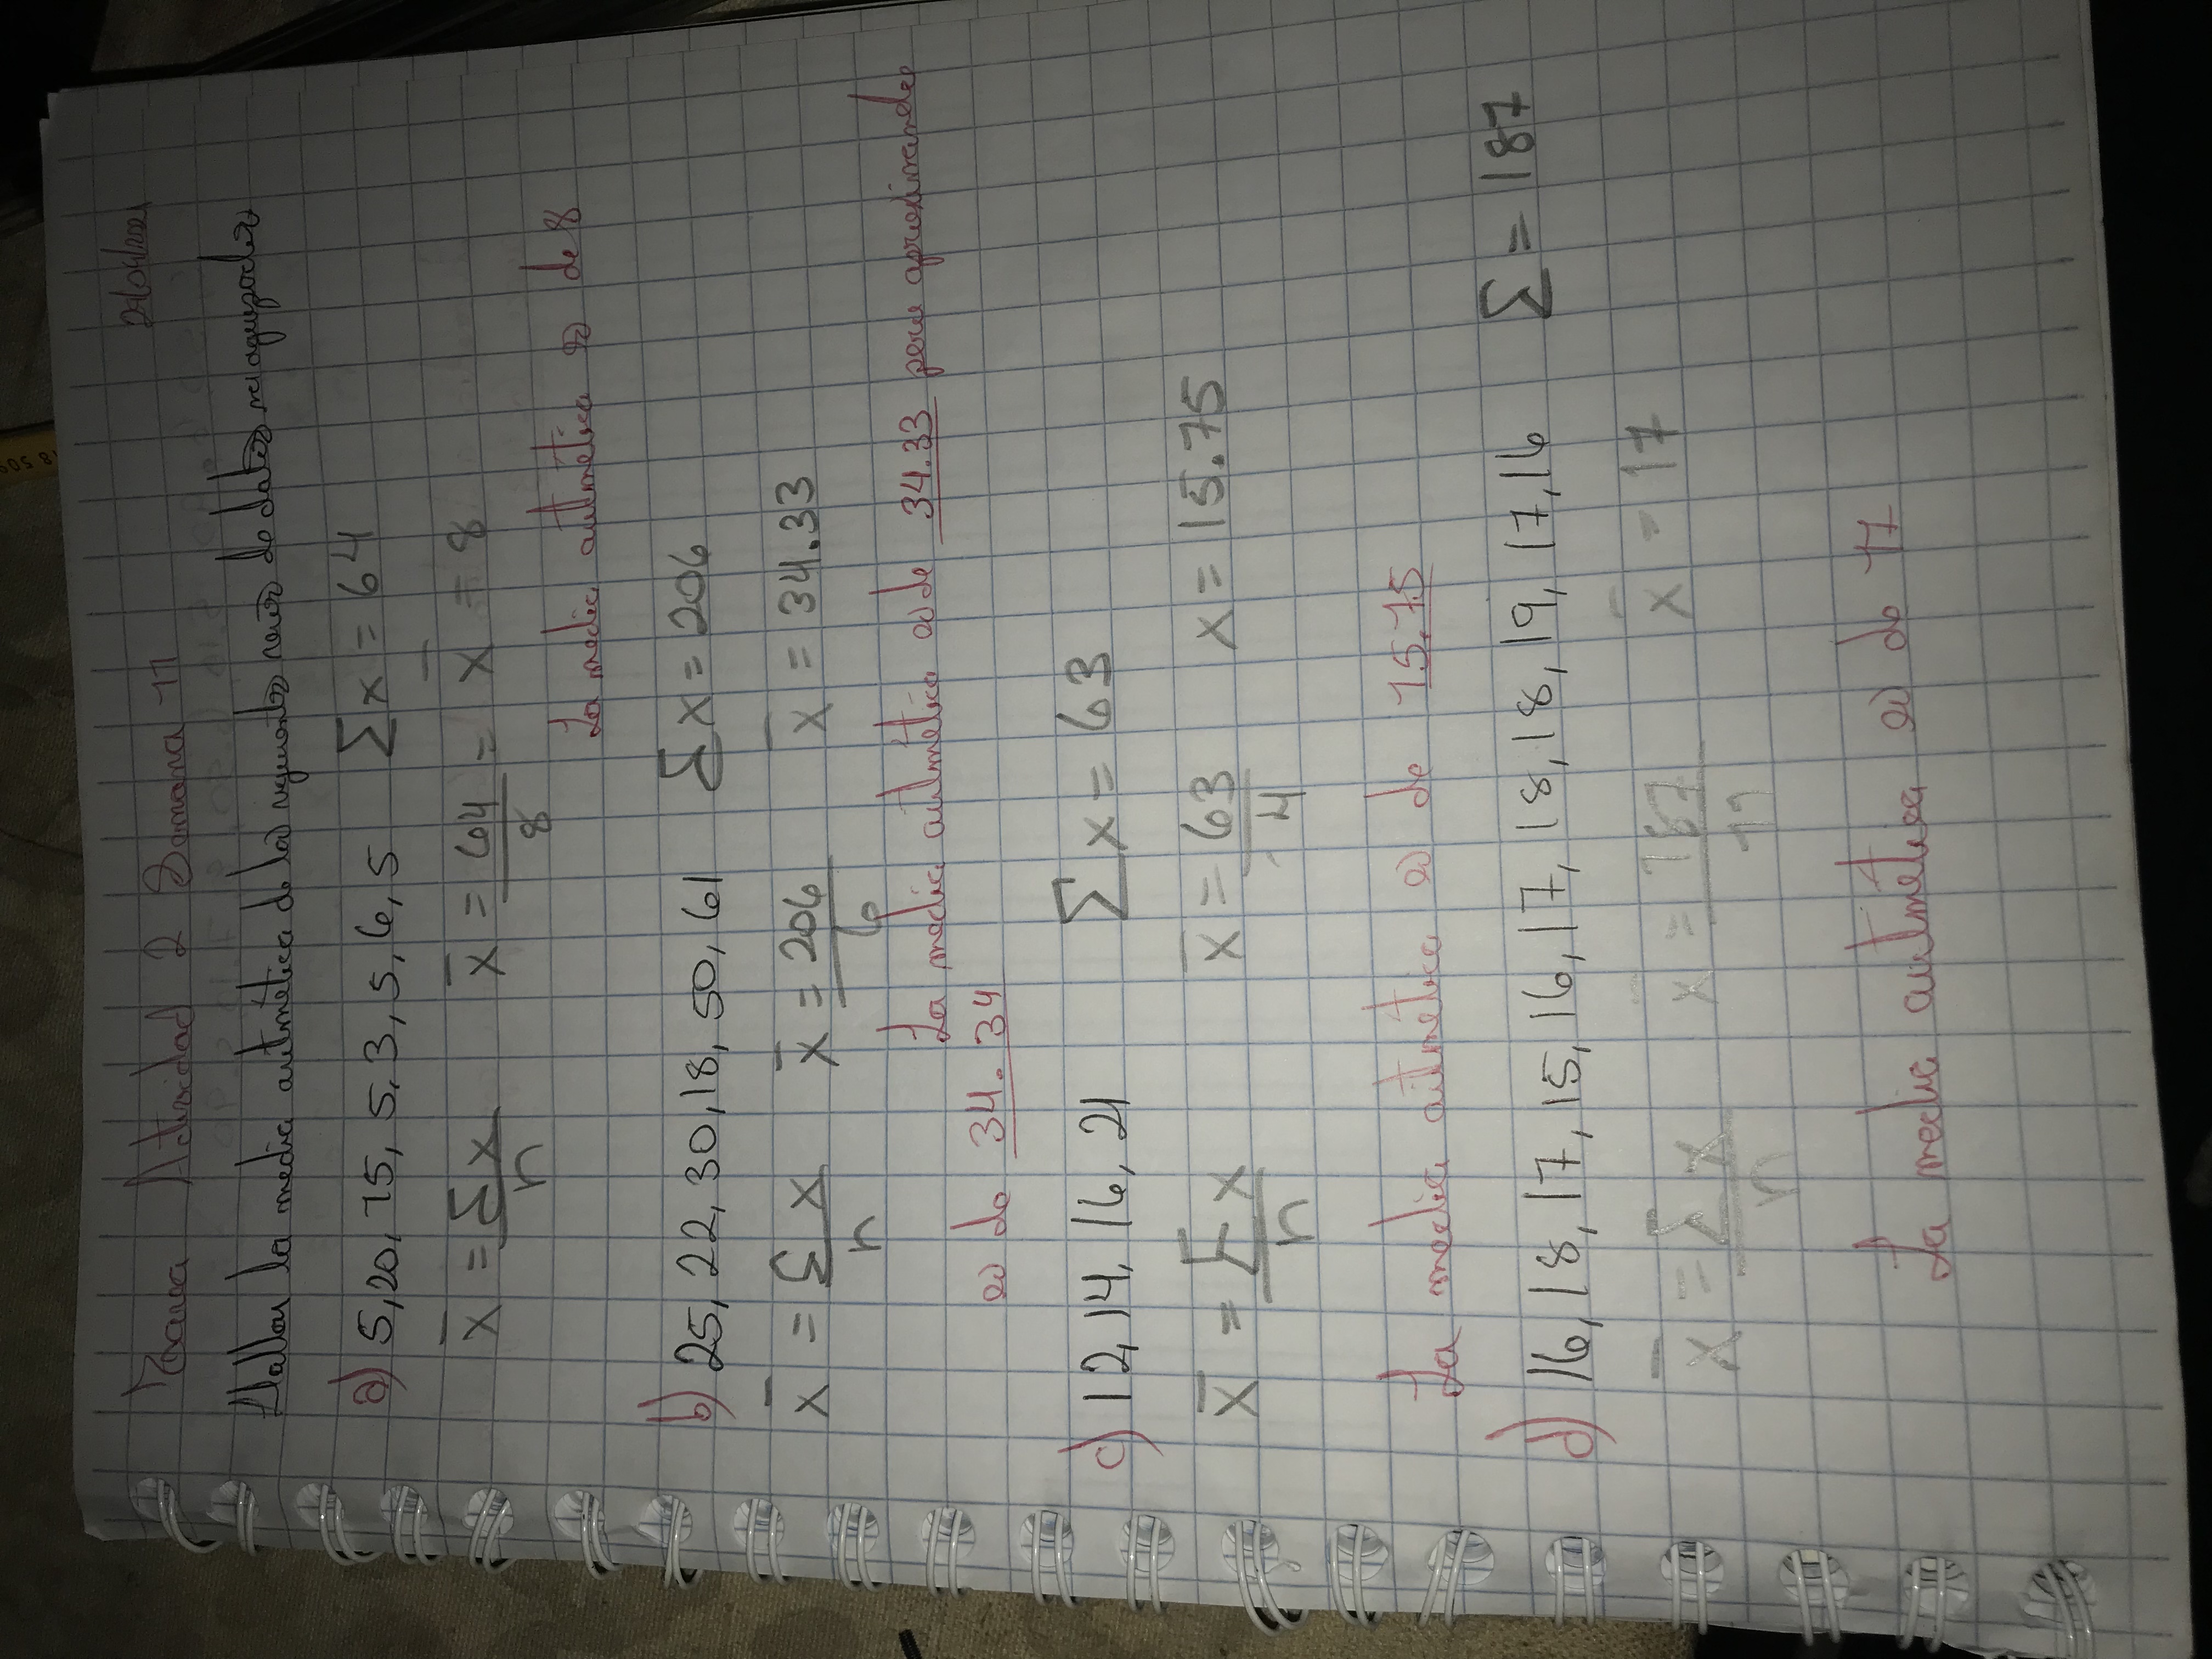 Tarea Actividad 2 Semana 11
Hallar la media aritmética de las siguientes series de datos no agrupados
a) 5, 20, 15, 5, 3, 5, 6, 5 ∑x = 64
x̄ = ∑x/n x̄ = 64/8 = x̄ = 8
La media aritmética es de 8
b) 25, 22, 30, 18, 50, 61 ∑x = 206
x̄ = ∑x/n x̄ = 206/6 x̄ = 34.33
La media aritmética es de 34.33 pero aproximando
es de 34.34
c) 12, 14, 16, 21 ∑x = 63
x̄ = ∑x/n x̄ = 63/4 x = 15.75
La media aritmética es de 15.75
d) 16, 18, 17, 15, 16, 17, 18, 18, 19, 17, 16 ∑ = 187
x̄ = ∑x/n x̄ = 187/11 x̄ = 17
La media aritmética es de 17